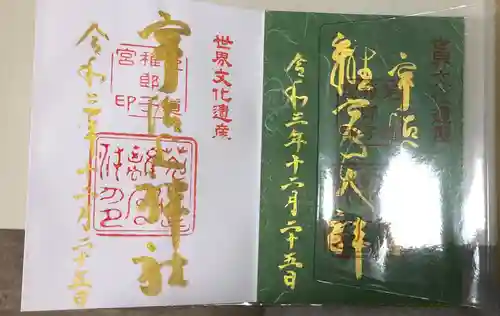 宇治
離宮大神
令和三年十二月二十五日
世界文化遺産
宇治上神社
稚郎子
宮印
令和三年十二月二十五日